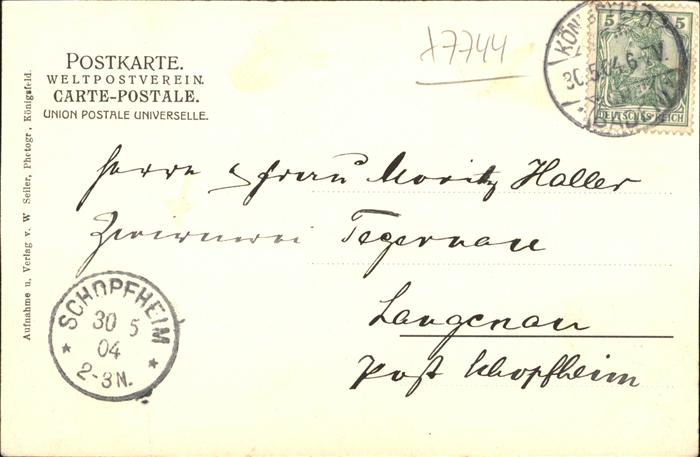 POSTKARTE.
WELTPOSTVEREIN.
CARTE-POSTALE.
UNION POSTALE UNIVERSELLE.
Aufnahme u. Verlag v. W Seiler, Photogr., Königsfeld.
17744
5 5
DEUTSCHES REICH
30.5.04. 6-7V.
Herrn & Frau Moritz Haller
Zwirnerei Tegernau
Langenau
Post Schopfheim
SCHOPFHEIM
30 5
04
2-3N.